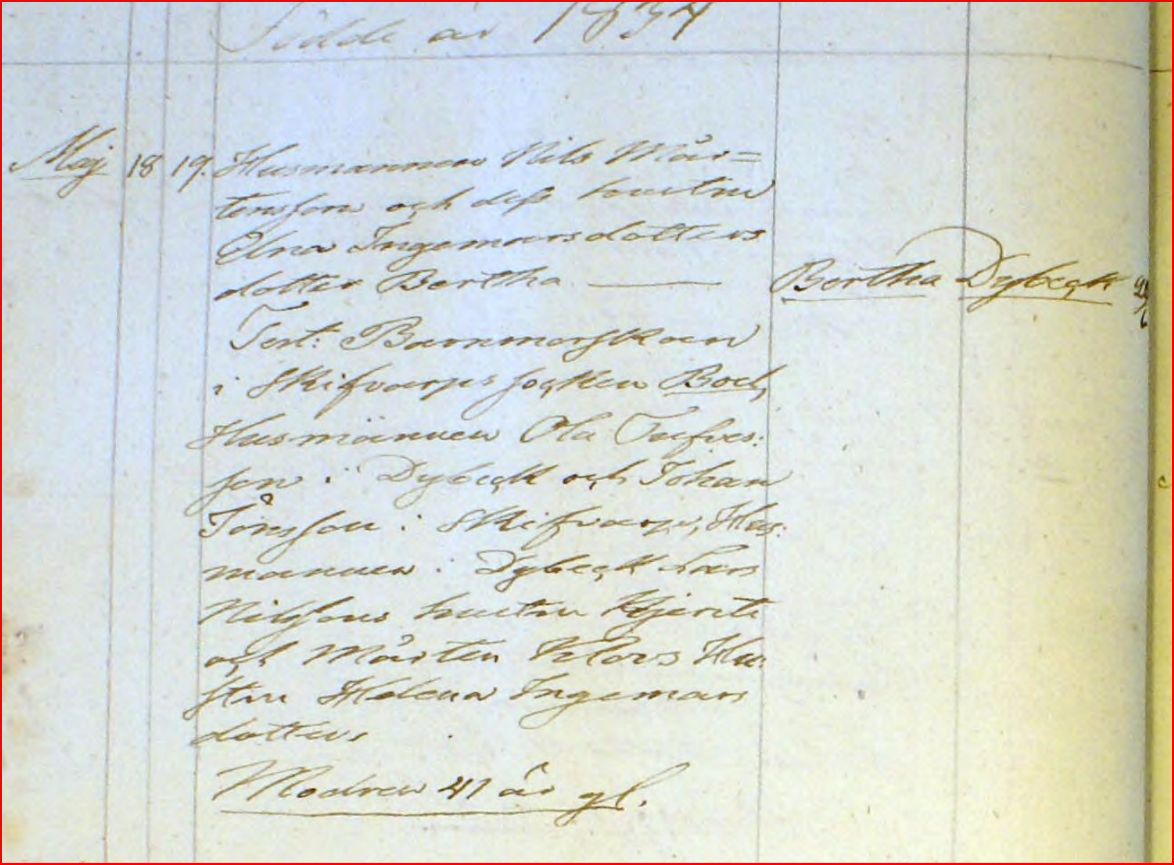 Födde år 1834
Maj 18 19. Husmannen Nils Mår=
tensson och dess hustru
Elna Ingemarsdotters
dotter Bertha — Bertha Dybeck
Test: Barnmorskan
i Skifvarps socken Boel,
Husmannen Ola Tufves:
son i Dybeck och Johan
Jönsson i Skifvarp, Hus:
mannen i Dybeck Lars
Nilssons hustru Kjersti
och Mårten Klovs Hu:
stru Helena Ingemars
dotters
Modren 41 år gl.